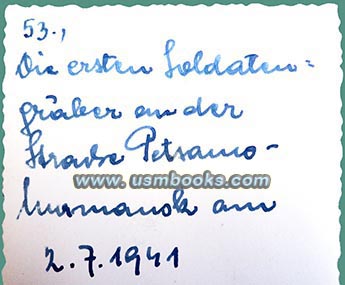 53.,
Die ersten Soldaten=
gräber an der
Straße Petsamo-
www.usmbooks.com
Murmansk am
2.7.1941